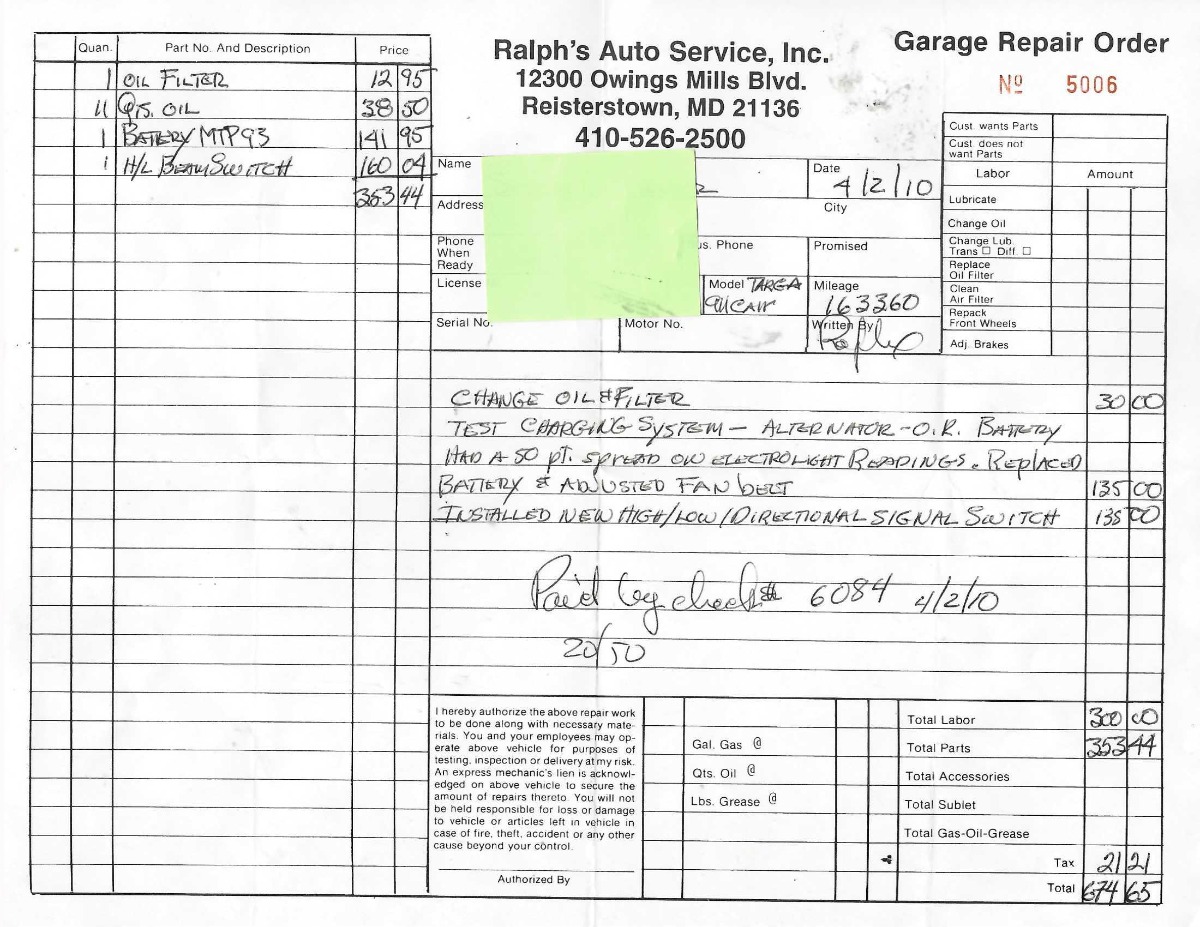 Quan. Part No. And Description Price
1 OIL FILTER 12 95
11 QTS. OIL 38 50
1 BATTERY MTP93 141 95
1 H/L BEAM SWITCH 160 04
353 44
Ralph's Auto Service, Inc.
12300 Owings Mills Blvd.
Reisterstown, MD 21136
410-526-2500
Garage Repair Order
Nº 5006
Cust. wants Parts
Cust. does not
want Parts
Labor Amount
Lubricate
Change Oil
Change Lub.
Trans ☐ Diff. ☐
Replace
Oil Filter
Clean
Air Filter
Repack
Front Wheels
Adj. Brakes
Name
Date 4/2/10
Address
City
Phone
When
Ready
us. Phone
Promised
License
Model TARGA
911 CARR
Mileage
163360
Serial No.
Motor No.
Written By
CHANGE OIL & FILTER 30 00
TEST CHARGING SYSTEM - ALTERNATOR - O.K. BATTERY
HAD A 50 pt. SPREAD ON ELECTROLIGHT READINGS. REPLACED
BATTERY & ADJUSTED FAN BELT 135 00
INSTALLED NEW HIGH/LOW/DIRECTIONAL SIGNAL SWITCH 135 00
Paid by check # 6084 4/2/10
20/50
I hereby authorize the above repair work
to be done along with necessary mate-
rials. You and your employees may op-
erate above vehicle for purposes of
testing, inspection or delivery at my risk.
An express mechanic's lien is acknowl-
edged on above vehicle to secure the
amount of repairs thereto. You will not
be held responsible for loss or damage
to vehicle or articles left in vehicle in
case of fire, theft, accident or any other
cause beyond your control.
Authorized By
Gal. Gas @
Qts. Oil @
Lbs. Grease @
Total Labor 300 00
Total Parts 353 44
Total Accessories
Total Sublet
Total Gas-Oil-Grease
Tax 21 21
Total 674 65